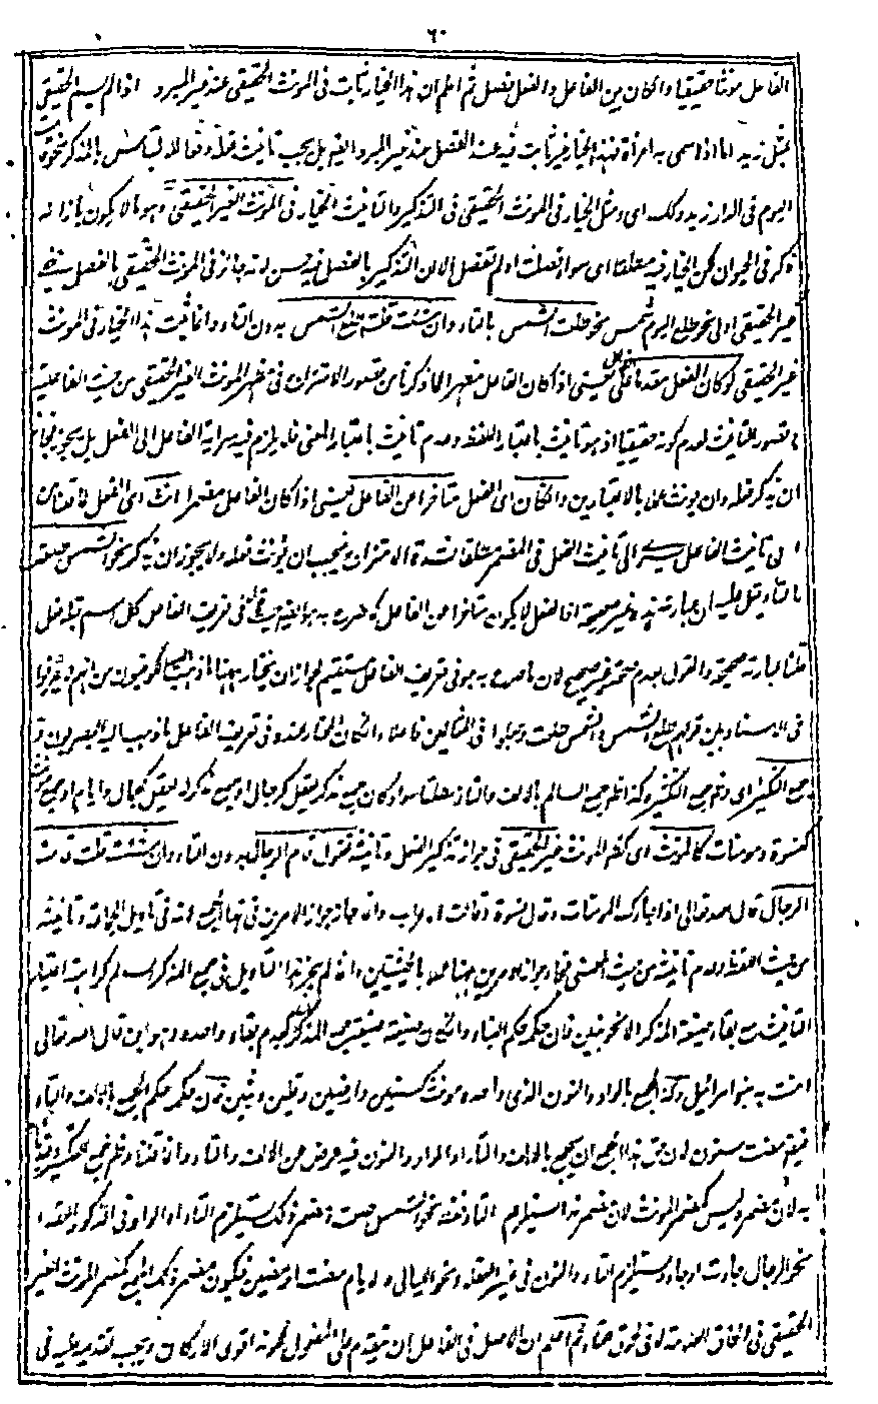 ٦٠
الفاعل مؤنثا حقيقيا والكان بين الفاعل والفعل فصل ثم اعلم ان هذا الخيار ثابت فى المؤنث الحقيقى عند غير المبرد اذا لم يسم الحقيقى
بمثل زيد اما اذا سمى به امرأة فهذا الخيار غير ثابت فيه عند الفصل عند غير المبرد ايضا بل يجب تانيث فعله دفعا لالتباس بالمذكر نحو
اليوم فى الدار زيد وكذلك اى ومثل الخيار فى المؤنث الحقيقى فى التذكير والتانيث الخيار فى المؤنث الغير الحقيقى وهو ما لا يكون بازائه
ذكر فى الحيوان لكن الخيار فيه مطلقا اى سواء فصلت او لم تفصل الا ان التذكير بالفصل فيه حسن لانه جائز فى المؤنث الحقيقى بالفصل
غير الحقيقى اولى نحو طلع اليوم شمس نحو طلعت الشمس بالتاء وان شئت قلت طلع الشمس بدون التاء وانما يثبت هذا الخيار فى المؤنث
غير الحقيقى لو كان الفعل مقدما على يعنى اذا كان الفاعل مظهرا لما ذكرنا من قصور الاقتران فى مظهر المؤنث الغير الحقيقى من حيث الفاعلية
وقصور التانيث لعدم كونه حقيقيا اذ هو تانيث باعتبار اللفظ وعدم تانيث باعتبار المعنى فلا يلزم فيه سراية الفاعل الى الفعل بل يجوز
ان يذكر فعله وان يؤنث عملا بالاعتبارين والكان اى الفعل متأخرا عن الفاعل يعنى اذا كان الفاعل مضمرا انث اى الفعل
تانيث الفاعل يسرى الى تانيث الفعل فى المضمر مطلقا لشدة الاقتران فيجب ان يؤنث فعله ولا يجوز ان يذكر نحو الشمس طلعت
بالتاء قيل عليه ان عبارته هذه غير صحيحة اذ الفعل لا يكون متأخرا عن الفاعل كما صرح به هو ايضا حيث قال فى تعريف الفاعل كل اسم قبله فعل
قلنا عبارته صحيحة والقول بعدم صحته غير صحيح لان ما صرح به هو فى تعريف الفاعل مستقيم لجواز ان يختار ههنا ما ذهب اليه الكوفيون من انهم لم يفرقوا
فى الاسناد بين قولهم طلع الشمس والشمس طلعت وجعلوا فى المثالين فاعلا والكان المختار عنده فى تعريف الفاعل ما ذهب اليه البصريون
وجمع التكسير اى وحكم جمع التكسير وكذا حكم جمع السالم بالالف والتاء مطلقا سواء كان جمع مذكر يعقل كرجال او جمع مذكر لا يعقل كجمال وايام او جمع مؤنث
كنسوة ومومنات كالمؤنث اى كحكم المؤنث غير الحقيقى فى جواز تذكير الفعل وتانيثه فتقول قام الرجال بدون التاء وان شئت قلت قامت
الرجال قال الله تعالى اذا جاءك المومنات وقال نسوة وقالت الاعراب وانما جاز جواز الامرين فى هذا الجمع لانه فى تاويل الجماعة وتانيثه
من حيث اللفظ وعدم تانيثه من حيث المعنى فجاز جواز الامرين ههنا عملا بالحيثيتين وانما لم يجز هذا التاويل فى جمع المذكر السالم لكراهة اعتبار
التانيث مع بقاء صيغة المذكر الا نحو بنين فان حكمه حكم البناء والكان صيغته صيغة جمع المذكر لعدم بقاء واحده وهو ابن قال الله تعالى
امنت به بنو اسرائيل وكذا الجمع بالواو والنون الذى واحده مونث كسنين وارضين وقلين وثبين فان حكمه حكم الجمع بالالف والتاء
فيقع مضت سنون لان حق هذا الجمع ان يجمع بالالف والتاء والواو والنون فيه عوض عن الالف والتاء وانما قلنا وحكم جمع التكسير
به لان مضمره ليس كمضمر المؤنث لان مضمر هذا استلزام التاء فقط نحو الشمس طلعت ومضمر ذلك يستلزم التاء او الواو فى المذكور العقلاء
نحو الرجال جاءت او جاءوا ويستلزم التاء والنون فى غير العقلاء نحو الليالى والايام مضت او مضين فيكون مضمر ذلك الجمع كمضمر المؤنث الغير
الحقيقى فى الحاق العلامة لا فى لحوق علامة ثم اعلم ان الاصل فى الفاعل ان يتقدم على المفعول لكونه اقوى الاركان ويجب تقديمه عليه فى